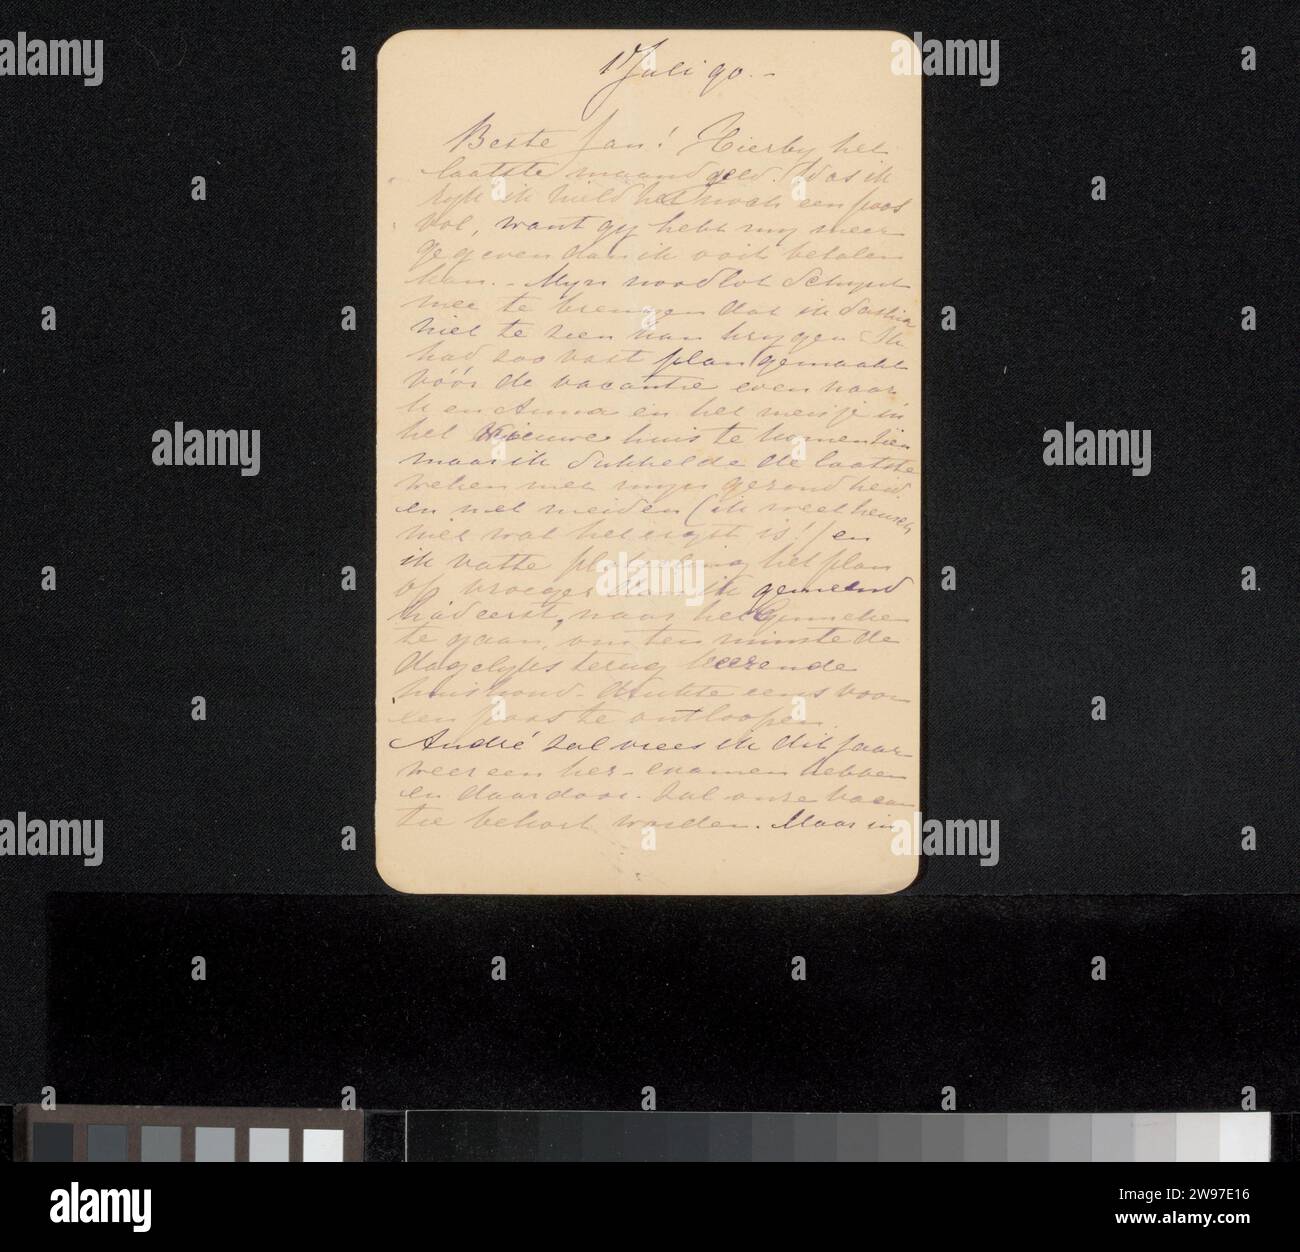 1 Juli 90.-
Beste Jan! Hierby het
laatste maandgeld. Was ik
ryk ik hield het noch een poos
vol, want gy hebt my meer
gegeven dan ik ooit betalen
kan. - Myn noodlot schynt
mee te brengen dat ik Saskia
niet te zien kan krygen. Ik
had zoo vast plan gemaakt
vóór de vacantie even naar
U en Anna en het meisje in
het nieuwe huis te komen zien
maar ik sukkelde de laatste
weken met myn gezondheid.
en met meiden (ik weet heusch
niet wat het ergst is!) en
ik vatte plotseling het plan
op vroeger dan ik gemeend
had eerst, naar het
te gaan, om ten minste de
dagelyks terug keerende
huishoud-drukte eens voor
een poos te ontloopen.
André zal vrees ik dit jaar
weer een her-examen hebben
en daardoor zal onze vacan
tie bekort worden. Maar in
alamy
Image ID: 2W97E16
www.alamy.com